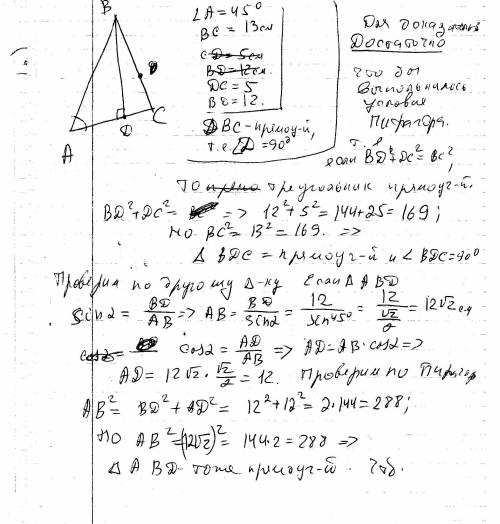 B
A
D
C
∠A = 45°
BC = 13 см
CD = 5 см
BD = 12 см
DC = 5
BD = 12.
DBC - прямоуг-й,
т.е. ∠D = 90°
Для
Достаточно
чтобы
выполнялось
условие
Пифагора.
т.е.
если BD²+DC² = BC²,
То треугольник прямоуг-й.
BD²+DC² = => 12²+5² = 144+25 = 169;
но BC² = 13² = 169. =>
Δ BDC = прямоуг-й и ∠ BDC = 90°
Проверим по другому Δ-ку Если Δ ABD
sin2 = BD/AB => AB = BD/sin2 = 12/sin45° = 12/(√2/2) = 12√2 см
cos2 = AD/AB => AD = AB·cos2 =>
AD = 12√2 · √2/2 = 12. Проверим по Пифагору
AB² = BD² + AD² = 12²+12² = 2·144 = 288;
но AB² = (12√2)² = 144·2 = 288 =>
Δ ABD - тоже прямоуг-й. Чтд.